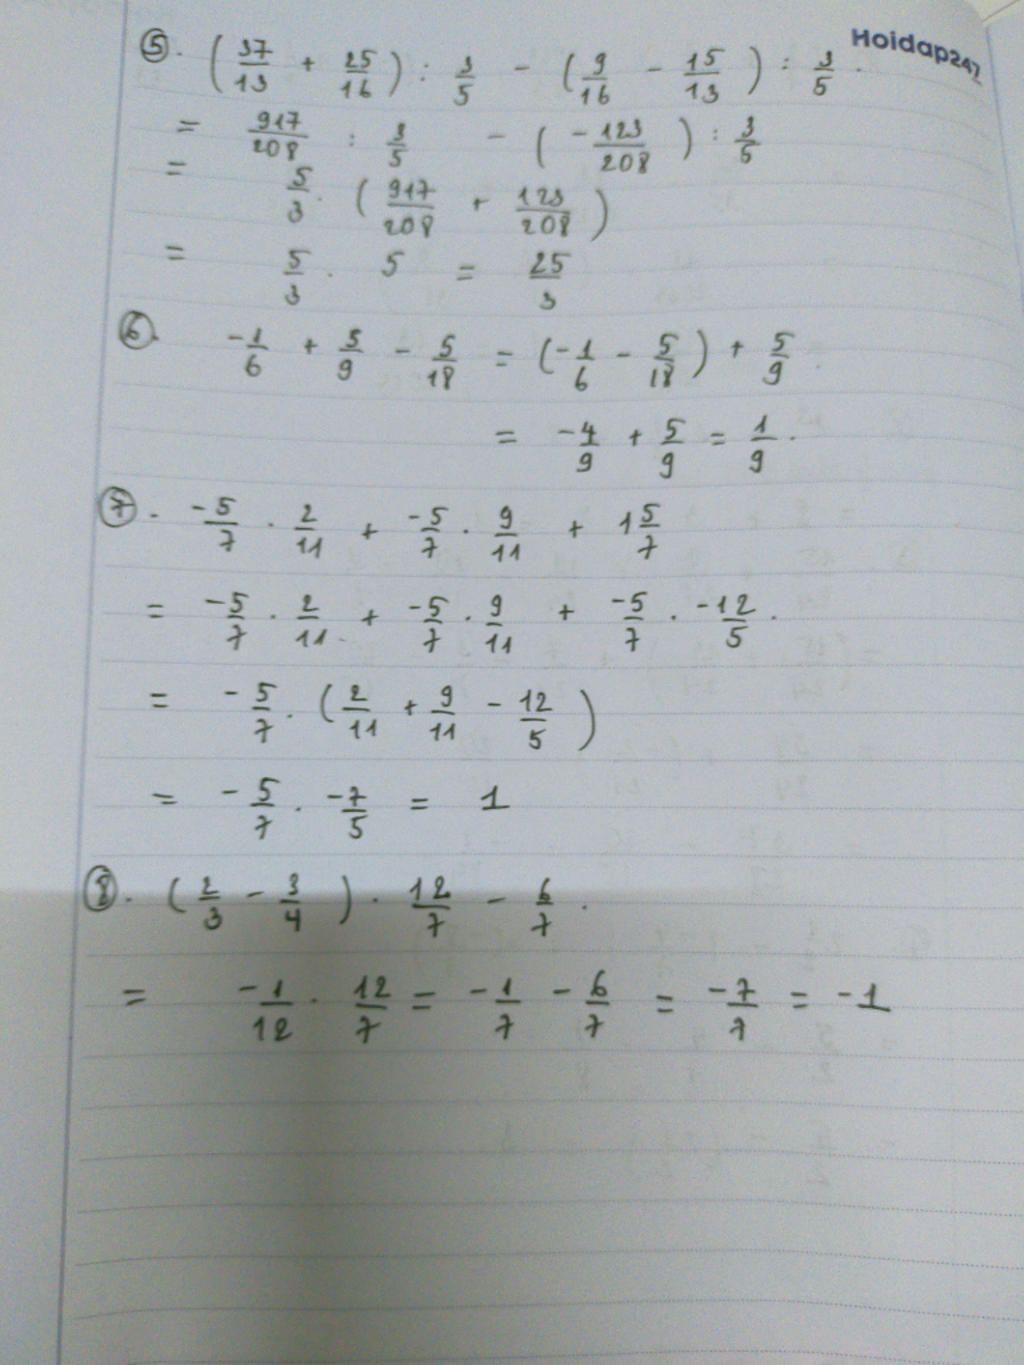 Hoidap247
⑤. (37/13 + 25/16) : 3/5 - (9/16 - 15/13) : 3/5.
= 917/208 : 3/5 - (-123/208) : 3/5
= 5/3 . (917/208 + 123/208)
= 5/3 . 5 = 25/3
⑥. -1/6 + 5/9 - 5/18 = (-1/6 - 5/18) + 5/9.
= -4/9 + 5/9 = 1/9.
⑦. -5/7 . 2/11 + -5/7 . 9/11 + 1 5/7
= -5/7 . 2/11 + -5/7 . 9/11 + -5/7 . -12/5.
= -5/7 . (2/11 + 9/11 - 12/5)
= -5/7 . -7/5 = 1
⑧. (2/3 - 3/4) . 12/7 - 6/7.
= -1/12 . 12/7 = -1/7 - 6/7 = -7/7 = -1